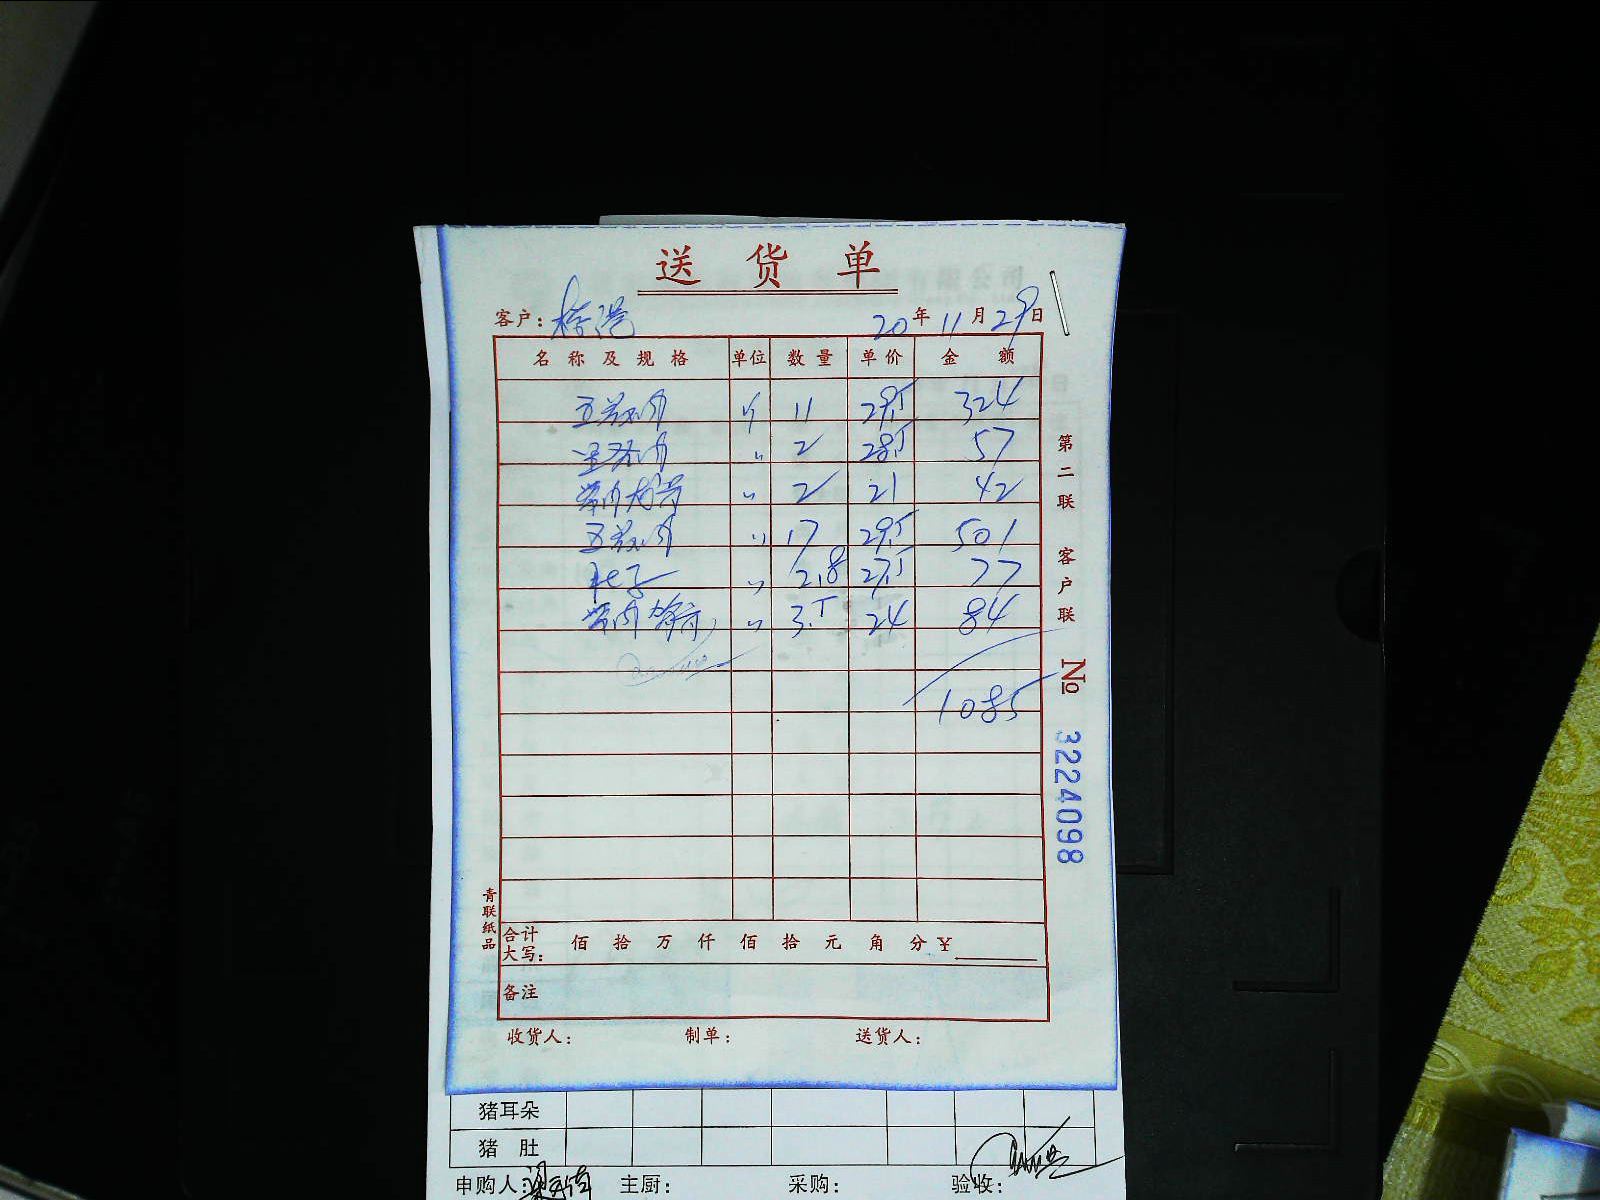 送货单
客户： 20年11月29日
名称及规格 单位 数量 单价 金额
五花肉 斤 11 29.5 324
〃 2 28.5 57
带肉 〃 2 21 42
五花肉 〃 17 29.5 501
肚子 〃 2.8 27.5 77
带肉 〃 3.5 24 84
1085
第二联 客户联
№ 3224098
青联纸品
合计大写： 佰 拾 万 仟 佰 拾 元 角 分 ¥
备注
收货人： 制单： 送货人：
猪耳朵
猪肚
申购人： 主厨： 采购： 验收：